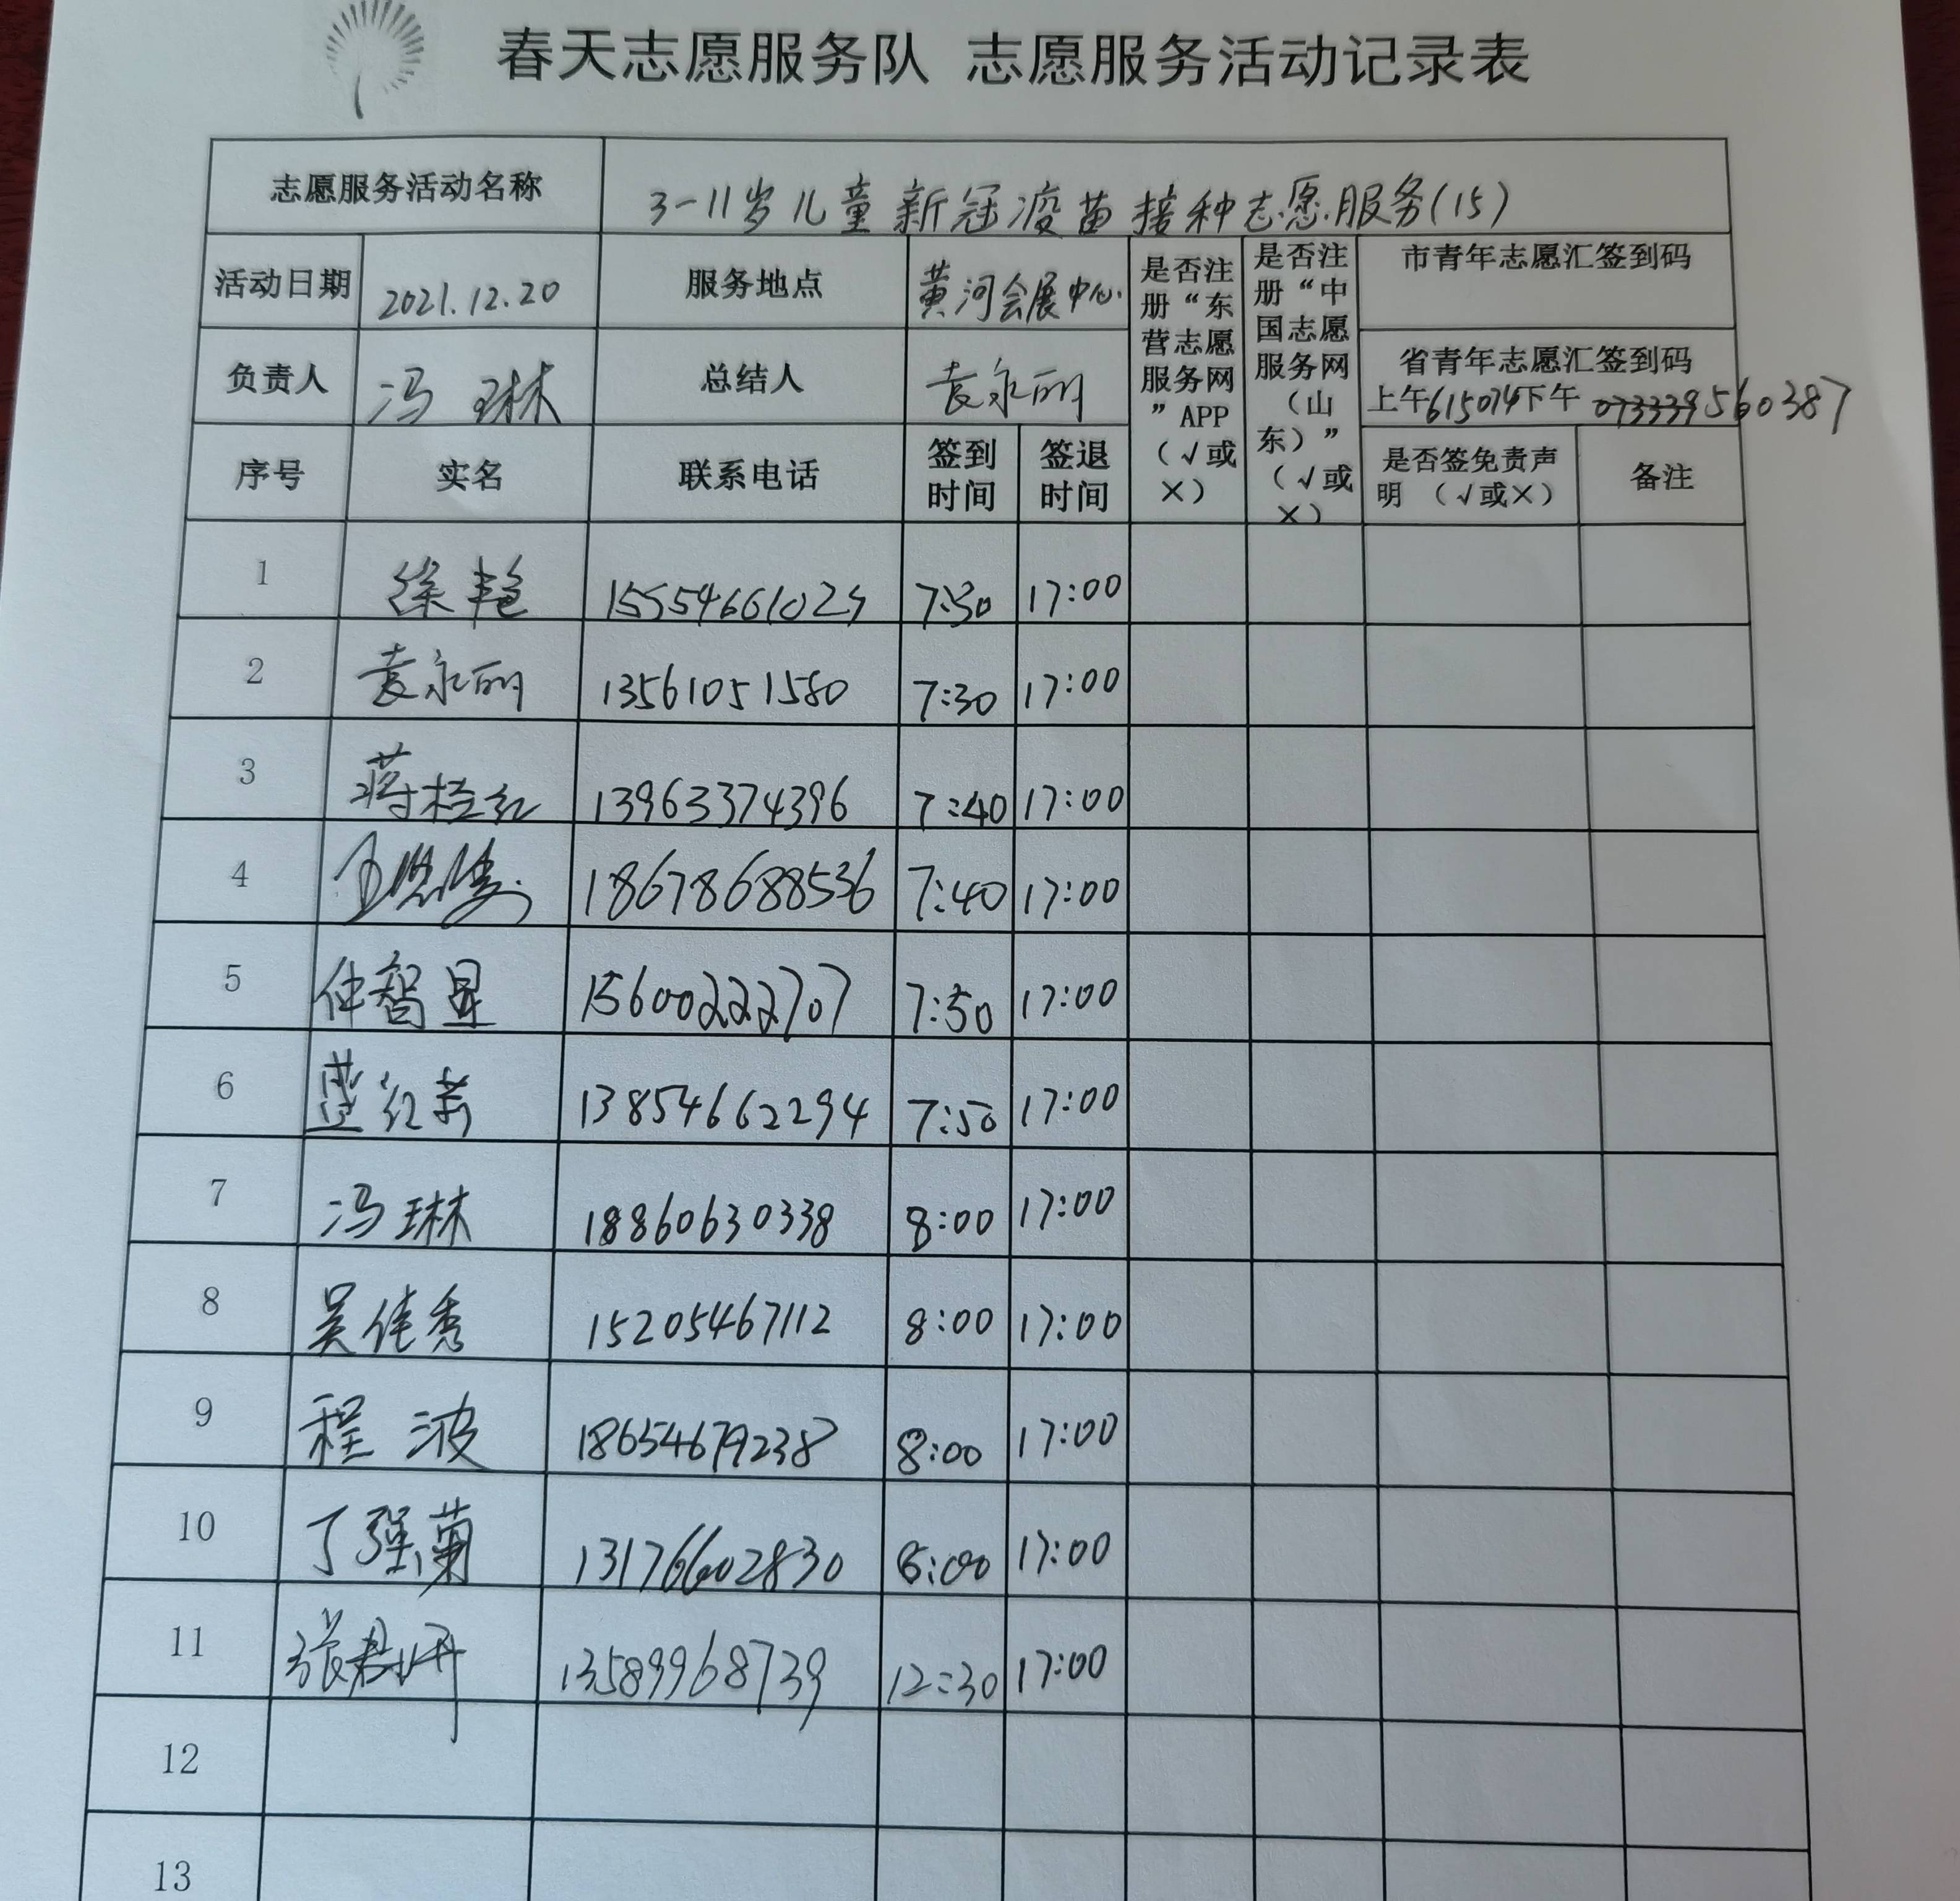 春天志愿服务队 志愿服务活动记录表
志愿服务活动名称 3-11岁儿童新冠疫苗接种志愿服务(15)
活动日期 2021.12.20 服务地点 黄河会展中心 是否注册“东营志愿服务网”APP（√或×） 是否注册“中国志愿服务网（山东）”（√或×） 市青年志愿汇签到码
负责人 冯琳 总结人 袁永丽 省青年志愿汇签到码
上午615074下午 073339560387
序号 实名 联系电话 签到时间 签退时间 是否签免责声明（√或×） 备注
1 徐艳 15554661025 7:30 17:00
2 袁永丽 13561051580 7:30 17:00
3 蒋桂红 13963374396 7:40 17:00
4 18678688536 7:40 17:00
5 仲智显 15600222707 7:50 17:00
6 13854662294 7:50 17:00
7 冯琳 18860630338 8:00 17:00
8 吴佳秀 15205467112 8:00 17:00
9 程波 18654679238 8:00 17:00
10 丁强菊 13176602830 8:00 17:00
11 13589968739 12:30 17:00
12
13